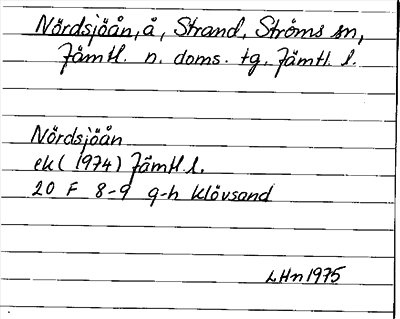 Nördsjöån, å, Strand, Ströms sn,
Jämtl. n. doms. tg. Jämtl. l.
Nördsjöån
ek (1974) Jämtl. l.
20 F 8-9 g-h Klövsand
LHn 1975